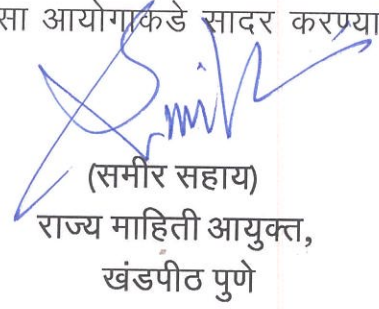 सा आयोगाकडे सादर करण्या
(समीर सहाय)
राज्य माहिती आयुक्त,
खंडपीठ पुणे